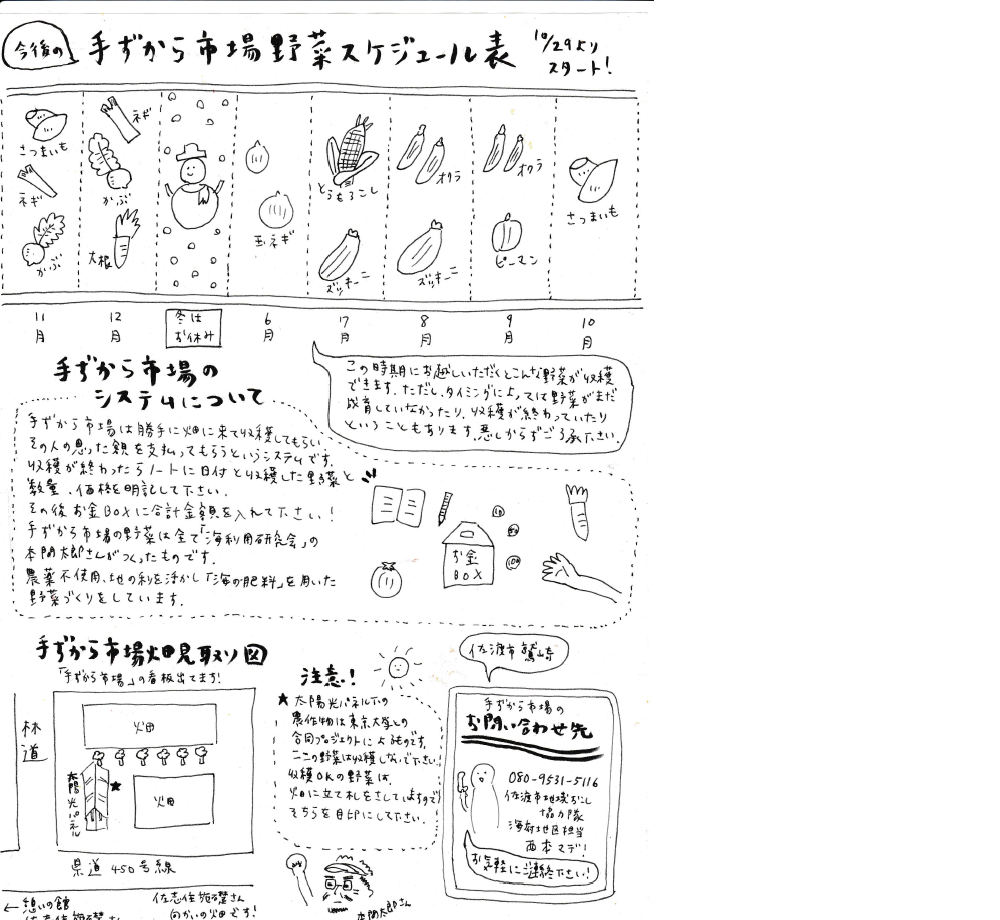 今後の
手ずから市場野菜スケジュール表
10/29より
スタート!
さつまいも
ネギ
かぶ
ネギ
かぶ
大根
玉ネギ
とうもろこし
ズッキーニ
オクラ
ズッキーニ
オクラ
ピーマン
さつまいも
11月
12月
冬は
お休み
6月
7月
8月
9月
10月
この時期にお越しいただくとこんな野菜が収穫
できます。ただし、タイミングによっては野菜がまだ
成育していなかったり、収穫が終わっていたり
ということもあります。悪しからずご了承下さい。
手ずから市場の
システムについて
手ずから市場は勝手に畑に来て収穫してもらい
その人の思った額を支払ってもらうというシステムです。
収穫が終わったらノートに日付と収穫した野菜と
数量、価格を明記して下さい。
その後お金BOXに合計金額を入れて下さい!
手ずから市場の野菜は全て「海利用研究会」の
本間太郎さんがつくったものです。
農薬不使用、地の利を活かし「海の肥料」を用いた
野菜づくりをしています。
10
50
100
お金
BOX
手ずから市場畑見取り図
「手ずから市場」の看板出てます!
林道
畑
太陽光パネル
★
畑
県道450号線
←憩いの館
佐志佐
向かいの畑です!
注意!
★太陽光パネル下の
農作物は東京大学との
合同プロジェクトによるものです。
ここの野菜は収穫しないで下さい。
収穫OKの野菜は、
畑に立て札をさしていますので
そちらを目印にして下さい。
本間太郎さん
佐渡市鷲崎
手ずから市場の
お問い合わせ先
080-9531-5116
佐渡市地域おこし
協力隊
海府地区担当
西本マデ!
お気軽にご連絡下さい!